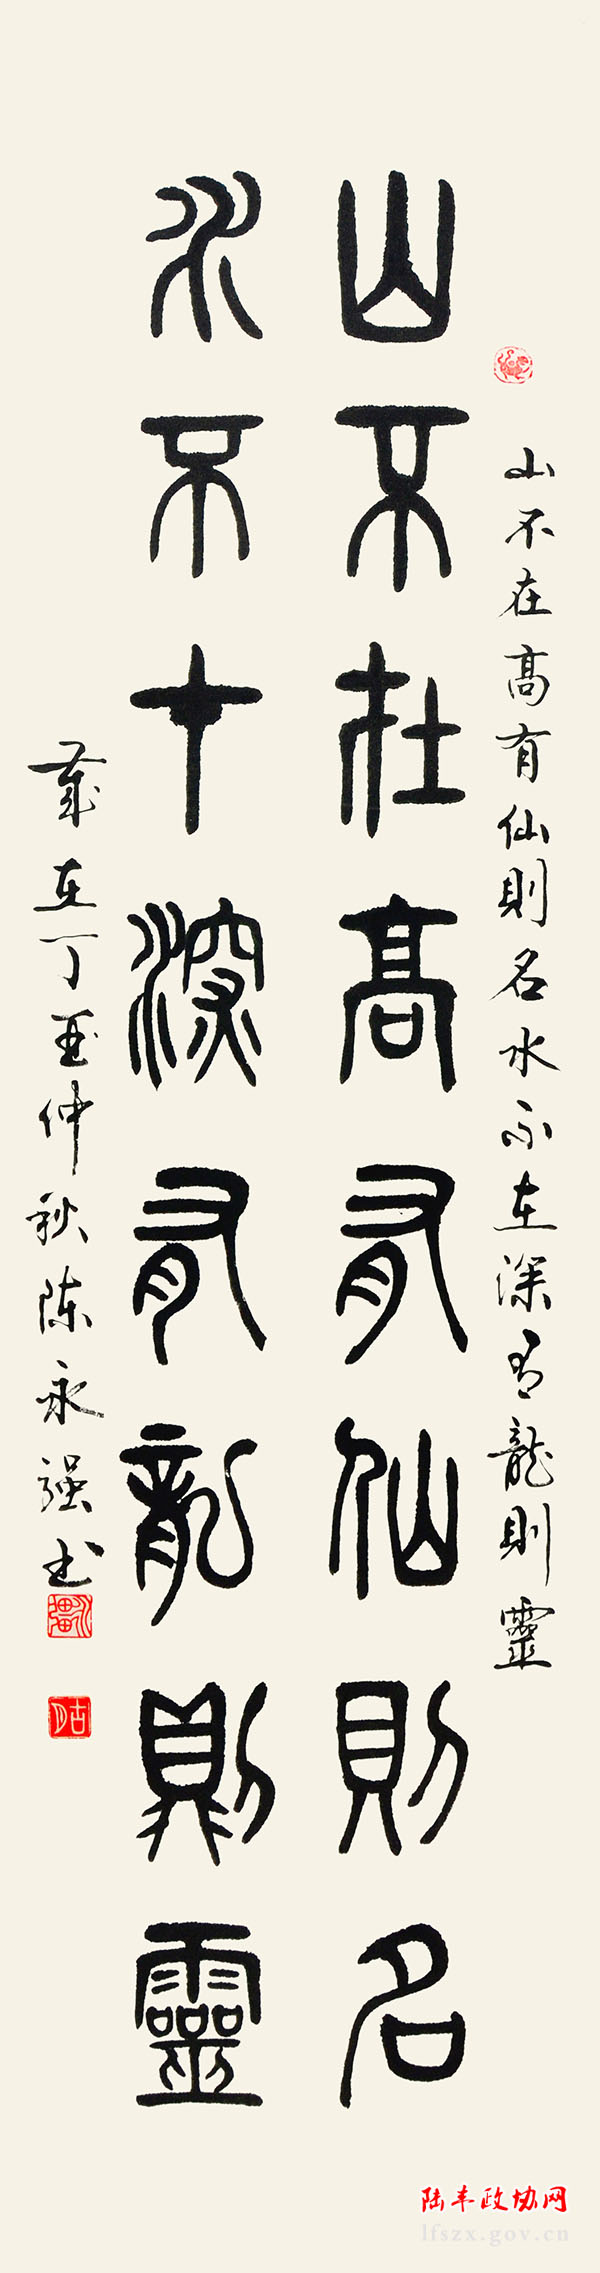 山不在高有仙則名水不在深有龍則靈
山不在高有仙則名
水不在深有龍則靈
歲在丁酉仲秋陈永强书
陆丰政协网
lfszx.gov.cn